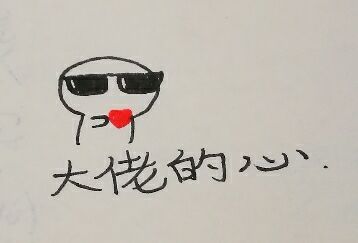 大佬的心.